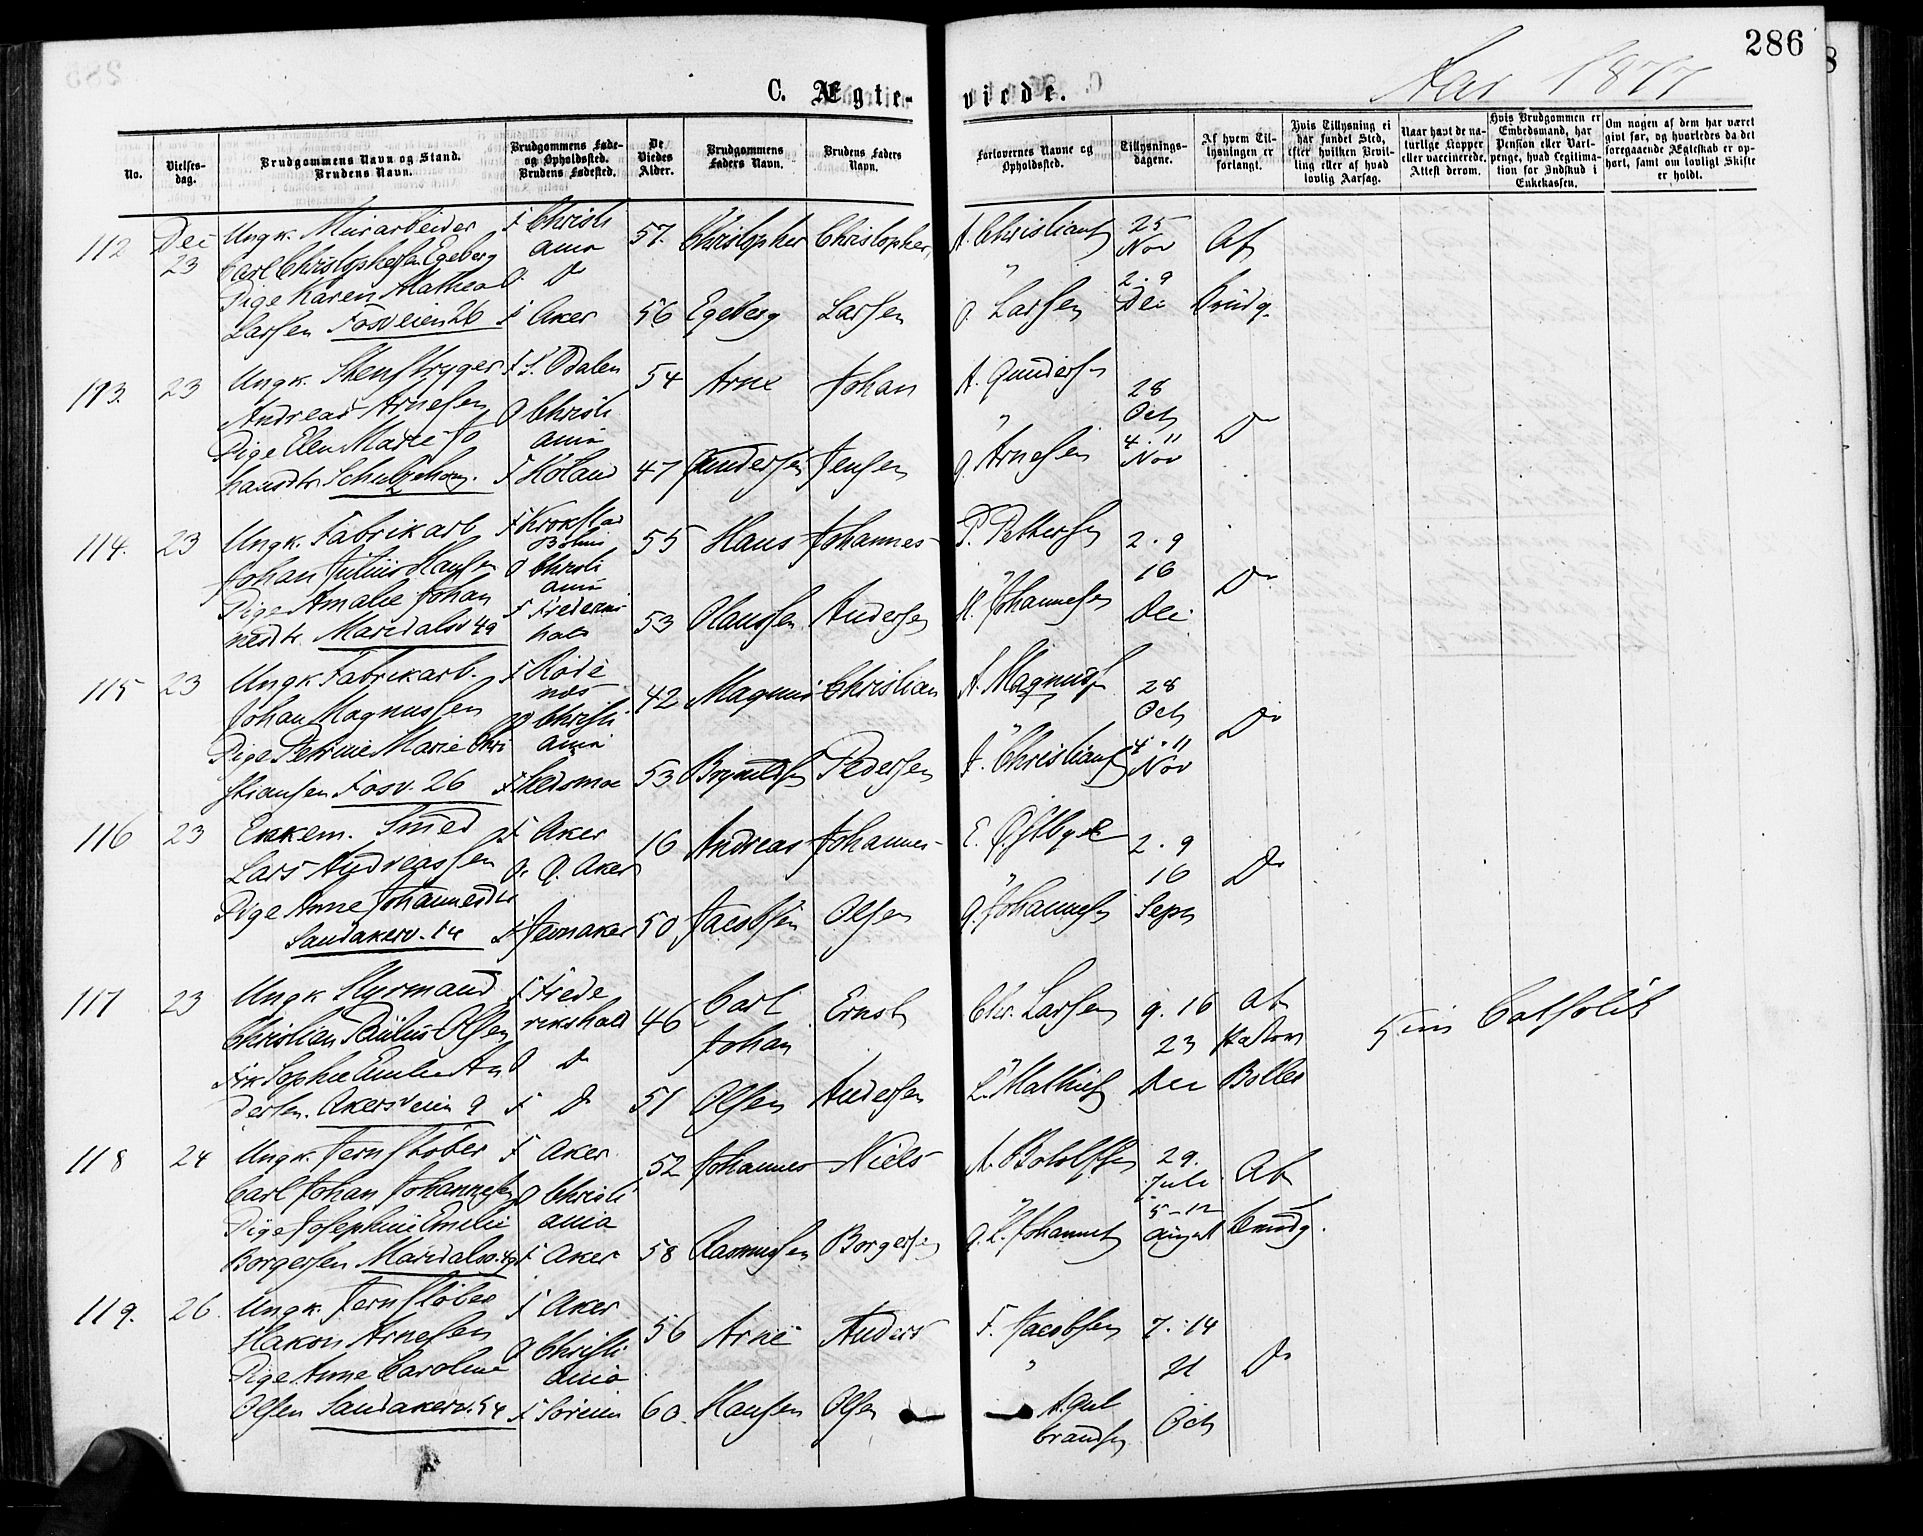 286
C. Ægte-
viede.
Aar 1877
No.
Vielses-
dag.
Brudgommens Navn og Stand.
Brudens Navn.
Brudgommens Føde-
og Opholdssted.
Brudens Fødested.
De
Viedes
Alder.
Brudgommens
Faders Navn.
Brudens Faders
Navn.
Forlovernes Navne og
Opholdssted.
Tillysnings-
dagene.
Af hvem Til-
lysningen er
forlangt.
Hvis Tillysning ei
har fundet Sted,
efter hvilken Bevil-
ling eller af hvad
lovlig Aarsag.
Naar havt de na-
turlige Kopper
eller vaccinerede.
Attest derom.
Hvis Brudgommen er
Embedsmand, har
Pension eller Vart-
penge, hvad Legitima-
tion for Indskud i
Enkekassen.
Om nogen af dem har været
gift før, og hvorledes da det
foregaaende Ægteskab er op-
hørt, samt om lovligt Skifte
er holdt.
112
Dec
23
Ungk. Murarbeider
Carl Christophersen Egeberg
Pige Karen Mathea
Larsen Fosveien 26
F Christi
ania
O. Do
F Aker
57.
56
Christopher
Egeberg
Christopher
Larsen
A. Christians
"
O. Larsen
25
Nov
2. 9
Dec
Af
Brudg.
113.
23
Ungk. Stenstryger
Andreas Arnesen
Pige Elen Marie Jo
hansdtr
F S. Odalen
O Christi
ania
F Høland
54
47
Arne
Gundersen
Johan
Jensen
A. Gundersen
"
G Arnesen
28
Oct
4. 11
Nov
Do
114.
23
Ungk. Fabrikarb
Johan Julius Hansen
Pige Amalie Johan
nesdtr. Maridalsv 49
F Krokstad
Bohus
O Christi
ania
F Frederiks
hald
55
53
Hans
Olaussen
Johannes
Andersen
P. Pettersen
"
H. Johannesen
2. 9
16
Dec
Do
115
23
Ungk Fabrikarb.
Johan Magnussen
Pige Petrine Marie Chri
stiansen Fosv. 26
F Røde
næs
O Christi
ania
F Skedsmoe
42
53
Magnus
Christian
Pedersen
A. Magnuss
"
J. Christians
28
Oct
4. 11
Nov
Do
116
23
Enkem. Smed
Lars Andreassen
Pige Anne Johannesdtr
Sandakerv. 54
F Aker
O. Ø. Aker
F Jevnaker
16
50
Andreas
Jacobsen
Johannes
Olsen
E. Østbye
"
G. Johannesen
2. 9
16
Sept
Do
117
23
Ungk Styrmand
Christian Paulus Olsen
Frk Sophie Emilie An
dersen. Akersveien 9
F Frede
rikshald
O Do
F Do
46
51
Carl
Johan
Olsen
Ernst
Andersen
Chr. Larsen
"
L. Mathies
9. 16
23
Dec
af
Pastor
Boller
Catholik
118
24
Ungk. Jernstøber
Carl Johan Johannesen
Pige Josephine Emilie
Borgersen Maridalsv. 49
F Aker
O Christi
ania
F Aker
52
58
Johannes
Rasmussen
Niels
Borgersen
"
29.
Juli
5-12
August
Af
Brudg.
119.
26
Ungk. Jernstøber
Hakon Arnesen
Pige Anne Caroline
Olsen Sandakerv. 54
F Aker
O Christi
ania
F Sørum
56
60.
Arne
Hansen
Anders
Olsen
F. Jacobsen
"
A. Gul
brandsen
7. 14
21
Oct
Do